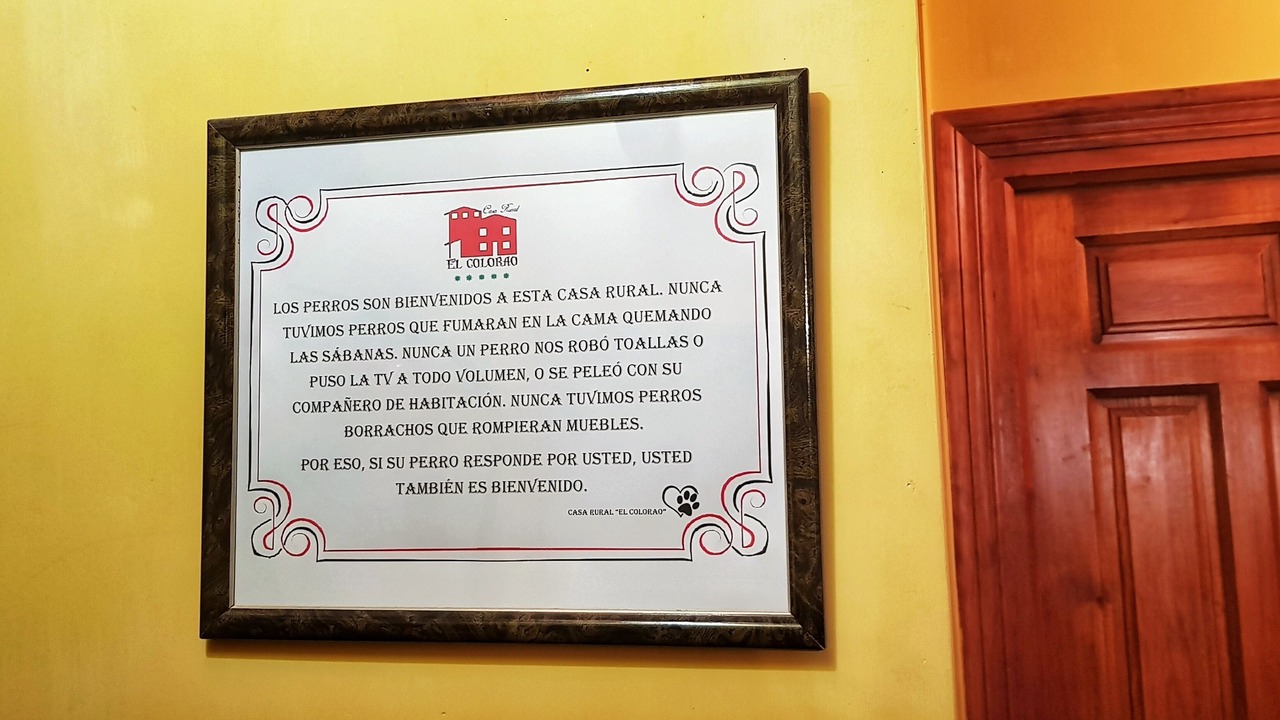 Casa Rural
EL COLORAO
LOS PERROS SON BIENVENIDOS A ESTA CASA RURAL. NUNCA
TUVIMOS PERROS QUE FUMARAN EN LA CAMA QUEMANDO
LAS SÁBANAS. NUNCA UN PERRO NOS ROBÓ TOALLAS O
PUSO LA TV A TODO VOLUMEN, O SE PELEÓ CON SU
COMPAÑERO DE HABITACIÓN. NUNCA TUVIMOS PERROS
BORRACHOS QUE ROMPIERAN MUEBLES.
POR ESO, SI SU PERRO RESPONDE POR USTED, USTED
TAMBIÉN ES BIENVENIDO.
CASA RURAL "EL COLORAO"